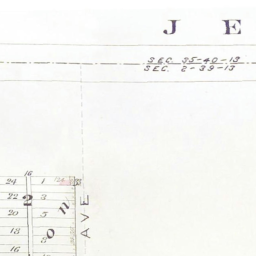 J E
SEC. 35-40-13
SEC. 2-39-13
16
24 1
22 2 3
20 5
18 8
16
on
AVE